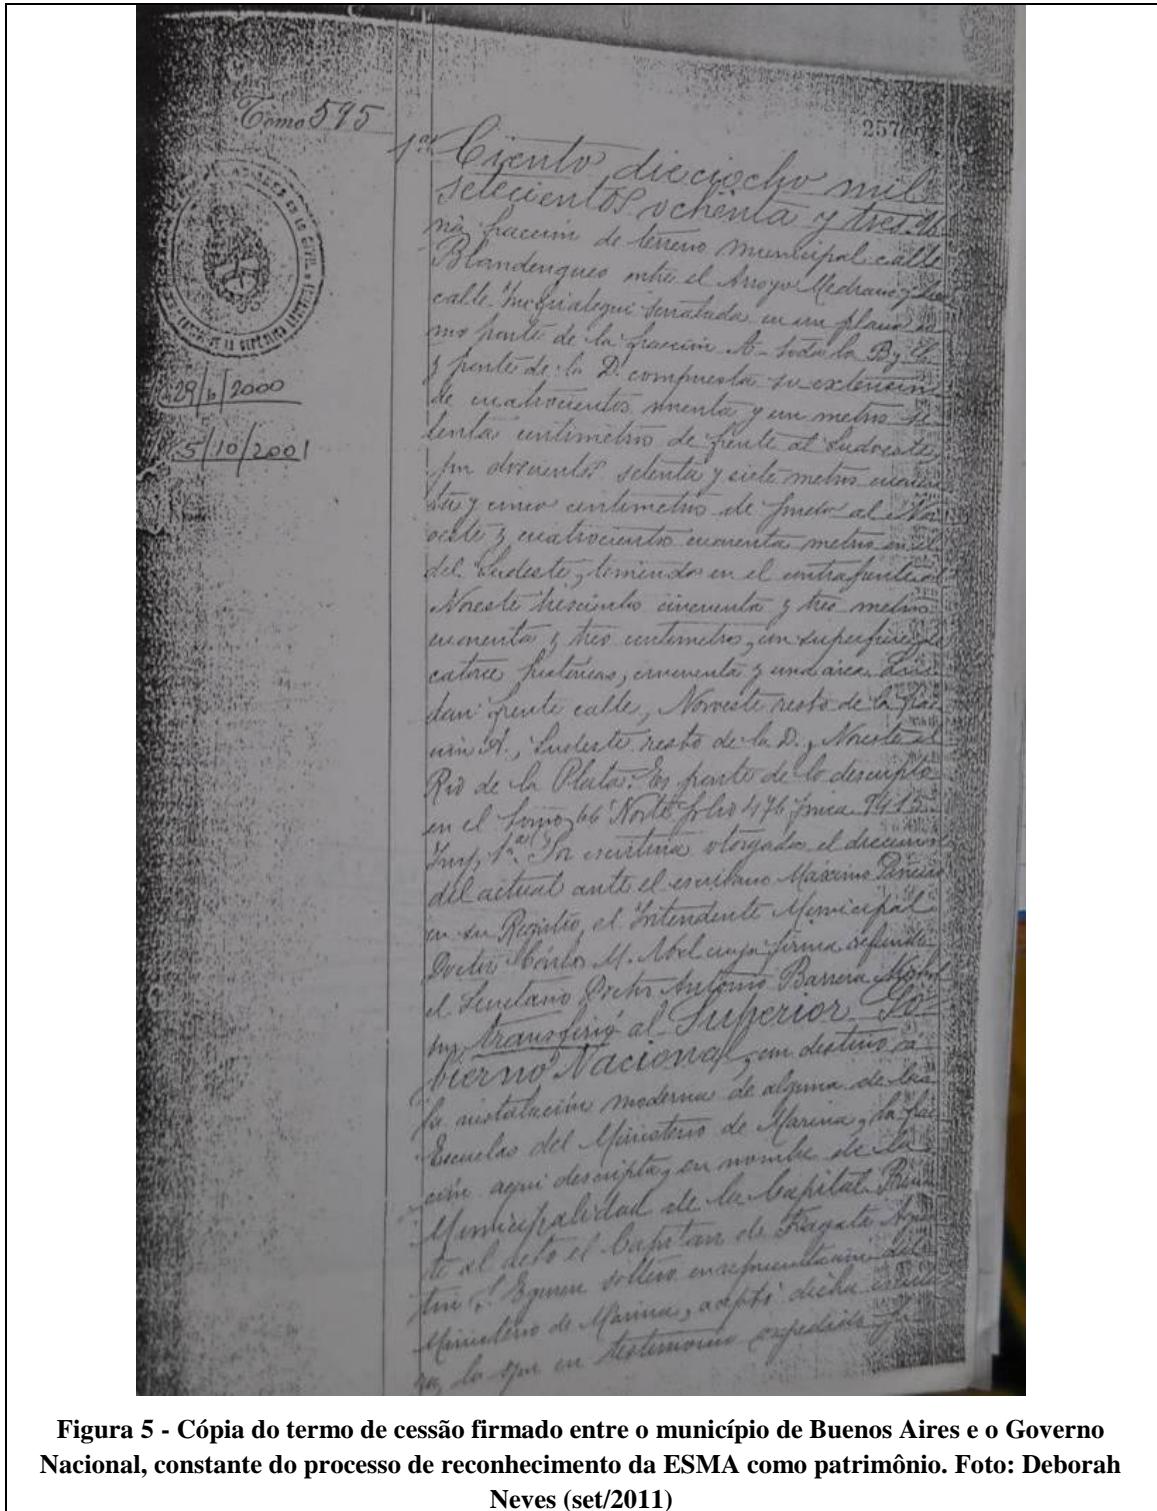 Tomo 595
257
1ª Ciento dieciocho mil
setecientos ochenta y tres. U
na fracción de terreno municipal calle
Blandengues entre el Arroyo Medrano y la
calle señalada en un plano co
mo parte de la fracción A- toda la B y C
y parte de la D. compuesta su extensión
de cuatrocientos noventa y un metros se
tenta centimetros de frente al Sudoeste,
por doscientos setenta y siete metros cuaren
ta y cinco centimetros de fondo al Nor
oeste y cuatrocientos cuarenta metros en el
del Sudeste, teniendo en el contrafrente al
Noreste trescientos cincuenta y tres metros
cuarenta y tres centimetros, con superficie de
catorce hectáreas, cincuenta y una área. Lin
dan: frente calle, Noroeste resto de la frac
ción A., Sudeste resto de la D., Noreste el
Rio de la Plata. Es parte de lo descripto
en el tomo 66 Norte folio 476 finca
1ª. Por escritura otorgada el
del actual ante el escribano Máximo
en su Registro, el Intendente Municipal
Doctor Carlos M. Noel cuya firma refrenda
el Secretario Doctor Antonio Barrera
transfirió al Superior Go-
bierno Nacional, con destino a
la instalación moderna de alguna de las
Escuelas del Ministerio de Marina, la frac
ción aqui descripta, en nombre de la
Municipalidad de la Capital. Presen
te al acto el Capitan de Fragata
soltero en representación del
Ministerio de Marina, aceptó dicha escritu
ra, la que en testimonio expedido
29/6/2000
5/10/2001
Figura 5 - Cópia do termo de cessão firmado entre o município de Buenos Aires e o Governo
Nacional, constante do processo de reconhecimento da ESMA como patrimônio. Foto: Deborah
Neves (set/2011)